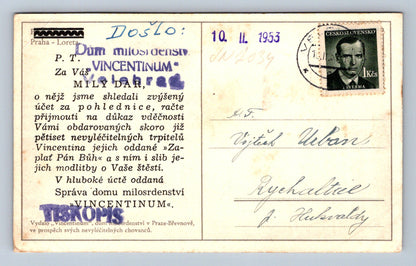 Došlo:
Praha - Loreta
Dům milosrdenstv.
"VINCENTINUM"
Velehrad
10. II. 1953
ČESKOSLOVENSKO
1 Kčs
P. T.
Za Váš
MILÝ DAR,
o nějž jsme shledali zvýšený
účet za pohlednice, račte
přijmouti na důkaz vděčnosti
Vámi obdarovaných skoro již
pětiset nevyléčitelných trpitelů
Vincentina jejich oddané »Za-
plať Pán Bůh« a s ním i slib je-
jich modlitby o Vaše štěstí.
V hluboké úctě oddaná
Správa domu milosrdenství
»VINCENTINUM«.
TISKOPIS
Vydalo „Vincentinum", dům milosrdenství v Praze-Břevnově,
ve prospěch svých nevyléčitelných chovanců.
Vojtěch Urban
Rychaltice
p. Hukvaldy